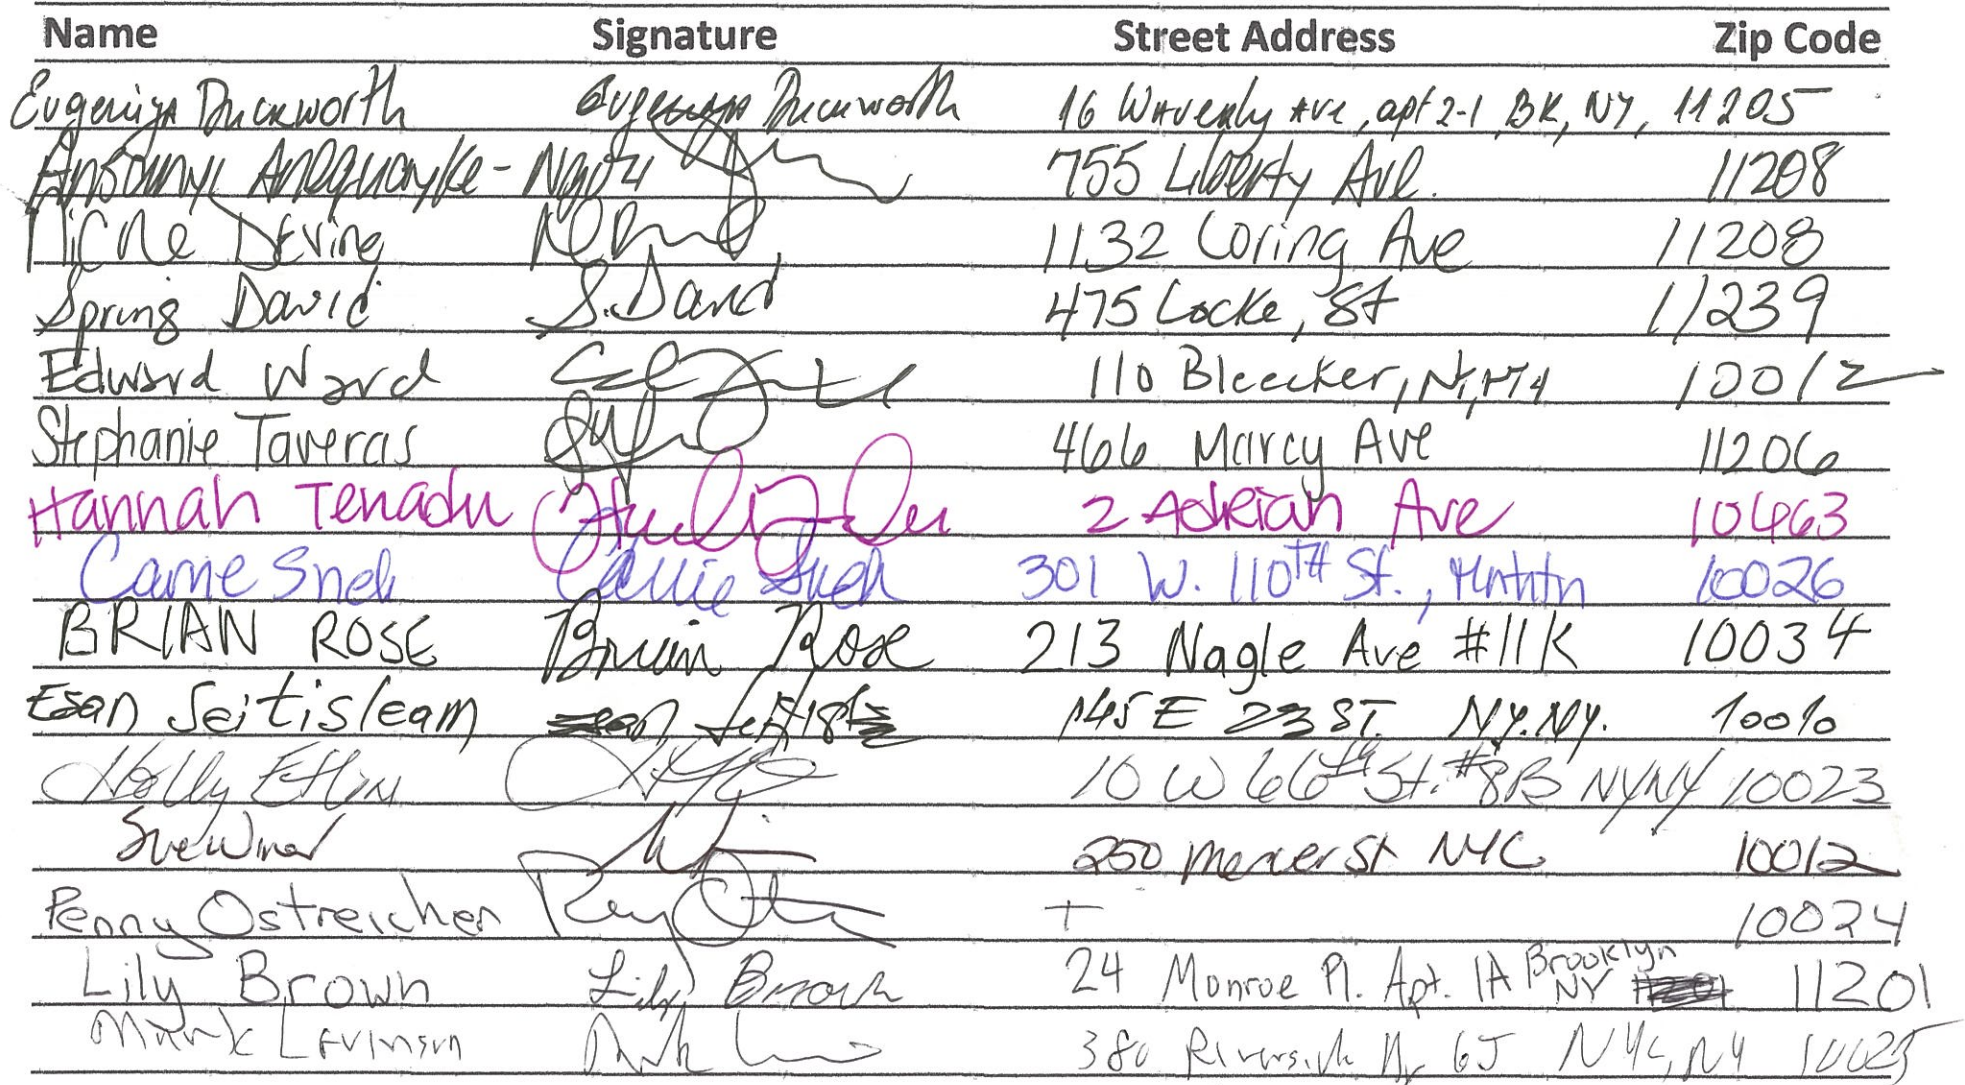 Name Signature Street Address Zip Code
Evgeniya Duckworth Evgeniya Duckworth 16 Waverly Ave, apt 2-1, BK, NY, 11205
755 Liberty Ave. 11208
Nicole Devine 1132 Loring Ave 11208
Spring David S. David 475 Locke, St 11239
Edward Ward 110 Bleecker, NY, NY 10012
Stephanie Taveras 466 Marcy Ave 11206
Hannah Tenadu 2 Adrian Ave 10463
301 W. 110TH St., Mnhttn 10026
BRIAN ROSE Brian Rose 213 Nagle Ave #11K 10034
Esan Seitisleam 145 E 23 ST. NY.NY. 10010
Holly 10 W 66th St. #8B NYNY 10023
Sue 250 Mercer St NYC 10012
Penny Ostreicher 10024
Lily Brown Lily Brown 24 Monroe Pl. Apt. 1A Brooklyn NY 11201
Mark Levinson 380 Riverside Dr 6J NYC, NY 10025